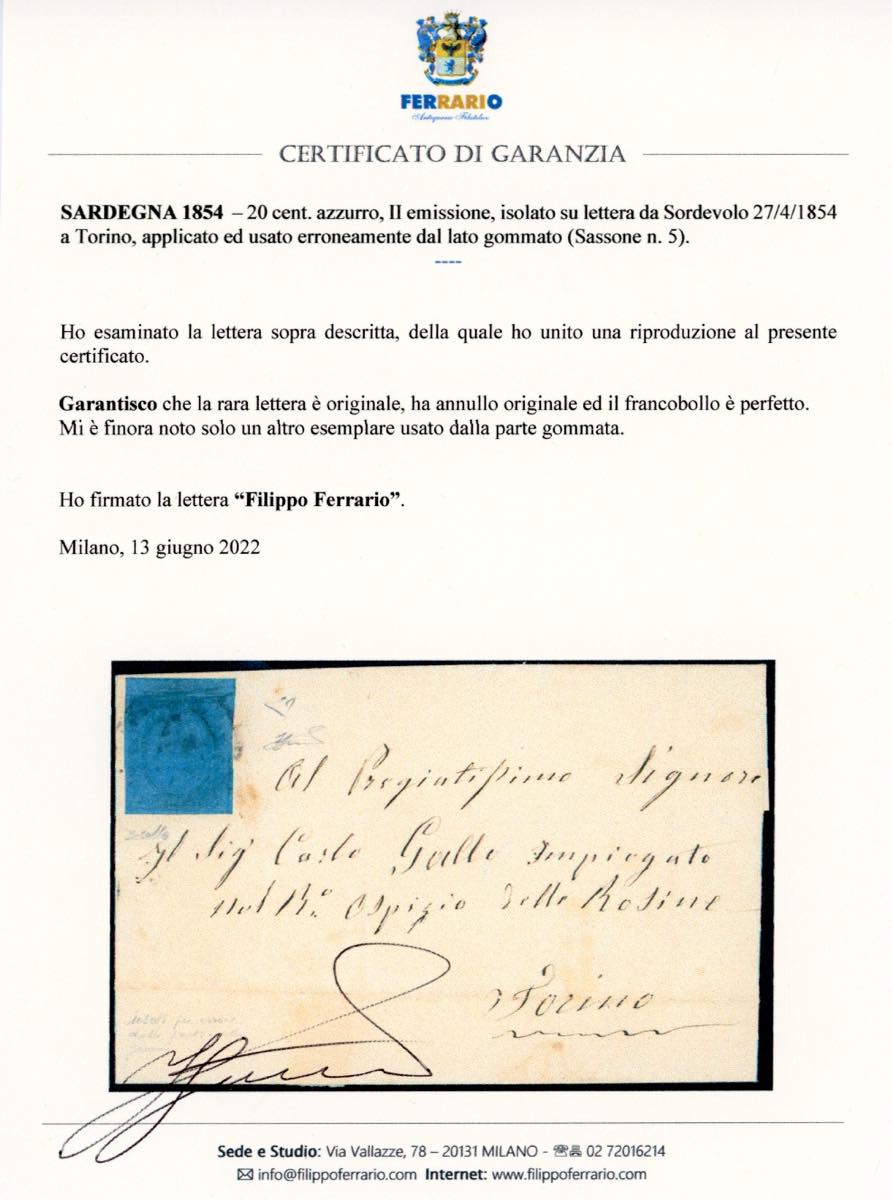 FERRARIO
Antiquariato Filatelico
CERTIFICATO DI GARANZIA
SARDEGNA 1854 – 20 cent. azzurro, II emissione, isolato su lettera da Sordevolo 27/4/1854
a Torino, applicato ed usato erroneamente dal lato gommato (Sassone n. 5).
----
Ho esaminato la lettera sopra descritta, della quale ho unito una riproduzione al presente
certificato.
Garantisco che la rara lettera è originale, ha annullo originale ed il francobollo è perfetto.
Mi è finora noto solo un altro esemplare usato dalla parte gommata.
Ho firmato la lettera “Filippo Ferrario”.
Milano, 13 giugno 2022
Al Pregiatissimo Signore
Il Sig Carlo Gallo Impiegato
nel R.o Ospizio delle Rosine
Torino
Sede e Studio: Via Vallazze, 78 – 20131 MILANO - 02 72016214
info@filippoferrario.com Internet: www.filippoferrario.com